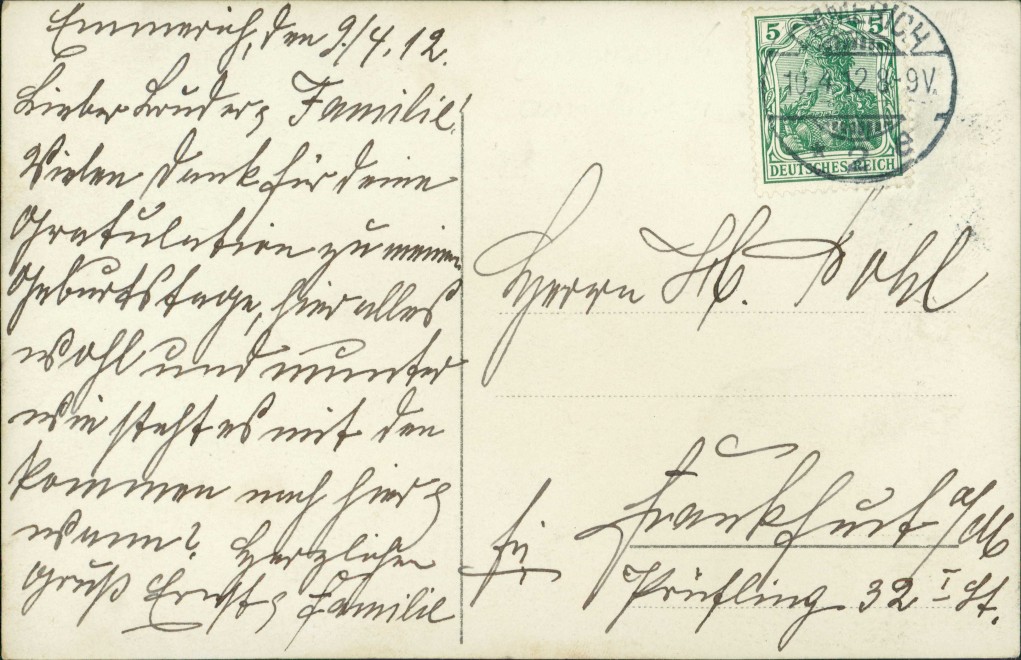 Emmerich, den 9./4.12.
Lieber Bruder & Familie!
Vielen Dank für deine
Gratulation zu meinem
Geburtstage, hier alles
wohl und munter
wie steht es mit den
kommen nach hier &
wann? Herzlichen
Gruß Ernst & Familie
5 5
EMMERICH
10.4.12.8-9V.
* 2 e
DEUTSCHES REICH
Herrn H. Pohl
in Frankfurt a/M
Prüfling 32 I St.